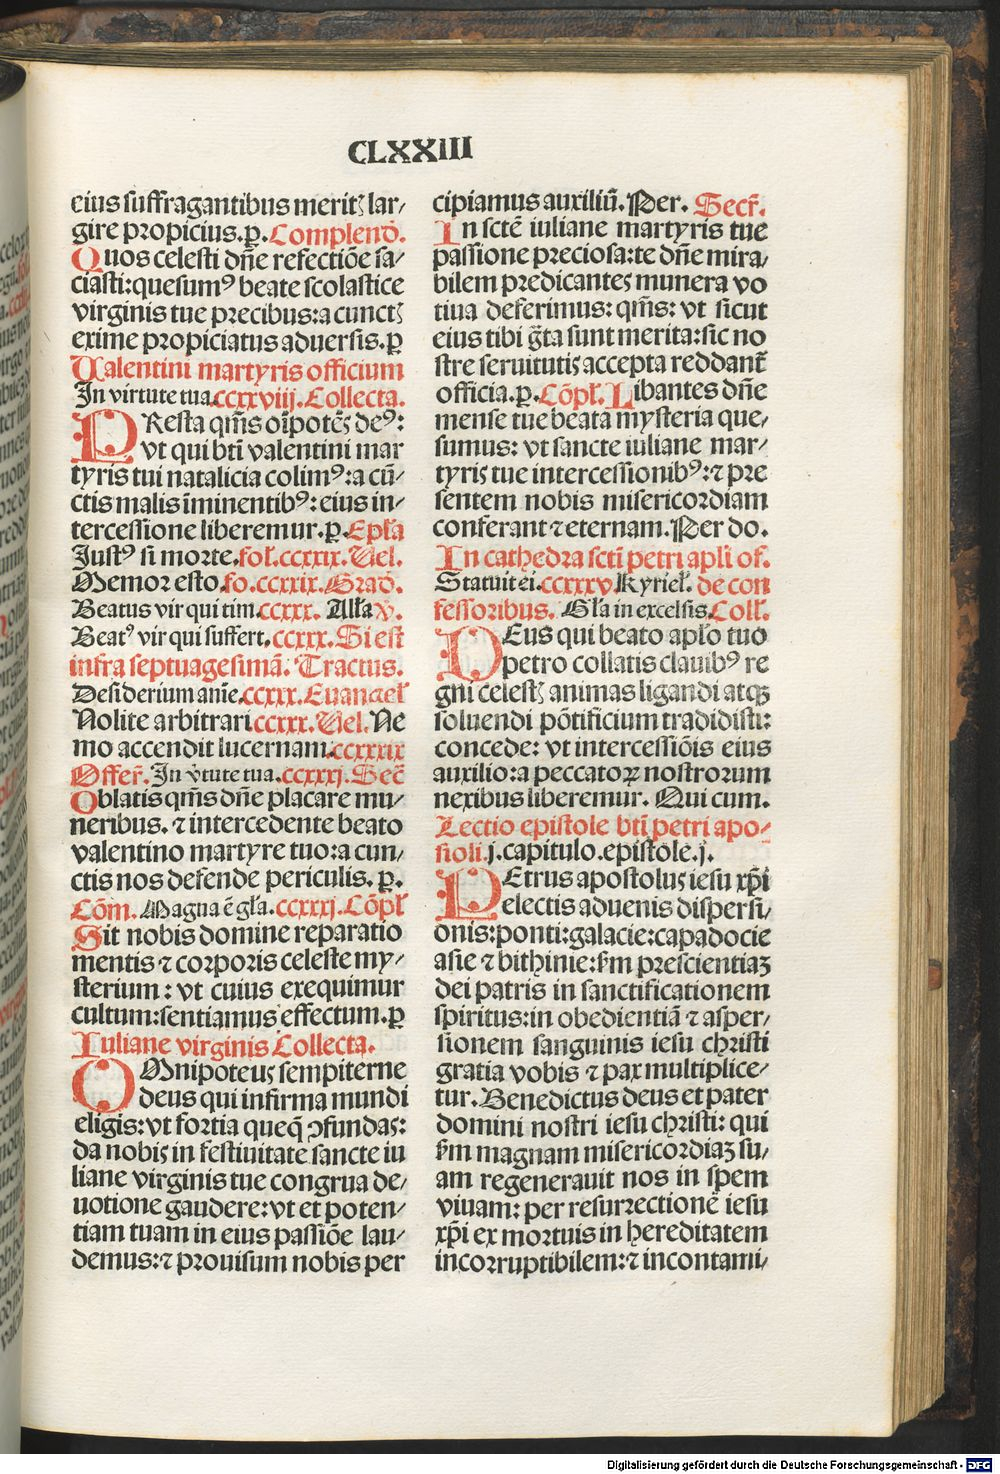 CLXXIII
eius suffragantibus meritꝫ lar⸗
gire propicius.ꝑ.Complenđ.
Quos celesti dn̄e refectiōe sa⸗
ciasti:quesumꝰ beate scolastice
virginis tue precibus:a cunctꝫ
exime propiciatus aduersis.ꝑ
Valentini martyris officium
In virtute tua.ccxxviij.Collecta.
PResta qm̄s oīpotēs deꝰ:
vt qui bt̄i valentini mar
tyris tui natalicia colimꝰ:a cū⸗
ctis malis īminentibꝰ:eius in⸗
tercessione liberemur.ꝑ.Epl̄a
Justꝰ si morte.fol.ccxxix.Vel.
Memor esto.fo.ccxxix.Građ.
Beatus vir qui tim.ccxxx. All̄a ℣.
Beatꝰ vir qui suffert.ccxxx.Si est
infra septuagesimā. Tractus.
Desiderium anīe.ccxxx.Euangel̄
Nolite arbitrari.ccxxx.Vel.Ne
mo accendit lucernam.ccxxxix
Offer̄.In v̄tute tua.ccxxxj.Sec̄
Oblatis qm̄s dn̄e placare mu⸗
neribus.⁊ intercedente beato
valentino martyre tuo:a cun⸗
ctis nos defende periculis.ꝑ.
Cōm.Magna ē gl̄a.ccxxxj.Cōpl̄
Sit nobis domine reparatio
mentis ⁊ corporis celeste my⸗
sterium: vt cuius exequimur
cultum:sentiamus effectum.ꝑ
Iuliane virginis Collecta.
OMnipoteus sempiterne
deus qui infirma mundi
eligis:vt fortia queqꝫ ꝯfundas:
da nobis in festiuitate sancte iu
liane virginis tue congrua de⸗
uotione gaudere:vt et poten⸗
tiam tuam in eius passiōe lau⸗
demus:⁊ prouisum nobis per
cipiamus auxiliū.Per. Secr̄.
In sctē iuliane martyris tue
passione preciosa:te dn̄e mira⸗
bilem predicantes munera vo
tiua deferimus: qm̄s: vt sicut
eius tibi ḡta sunt merita:sic no
stre seruitutis accepta reddant̄
officia.ꝑ.Cōpl̄.Libantes dn̄e
mense tue beata mysteria que⸗
sumus: vt sancte iuliane mar⸗
tyris tue intercessionibꝰ:⁊ pre
sentem nobis misericordiam
conferant ⁊ eternam.Per do.
In cathedra sctī petri apl̄i of.
Statuit ei.ccxxxv.Kyriel̄.de con
fessoribus. Gl̄a in excelsis.Coll̄.
DEus qui beato apl̄o tuo
petro collatis clauibꝰ re
gni celestꝫ animas ligandi atqꝫ
soluendi pōtificium tradidisti:
concede: vt intercessiōis eius
auxilio:a peccatoꝝ nostrorum
nexibus liberemur. Qui cum.
Lectio epistole bt̄i petri apo⸗
stoli.j.capitulo.epistole.j.
PEtrus apostolus iesu xp̄i
electis aduenis dispersi⸗
onis:ponti:galacie:capadocie
asie ⁊ bithinie:sm̄ prescientiaꝫ
dei patris in sanctificationem
spiritus:in obedientiā ⁊ asper⸗
sionem sanguinis iesu christi
gratia vobis ⁊ pax multiplice⸗
tur.Benedictus deus et pater
domini nostri iesu christi: qui
sm̄ magnam misericordiaꝫ su⸗
am regenerauit nos in spem
viuam:per resurrectionē iesu
xp̄i ex mortuis in hereditatem
incorruptibilem:⁊ incontami⸗
Digitalisierung gefördert durch die Deutsche Forschungsgemeinschaft - DFG